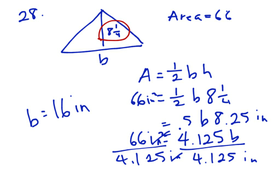 28.
8 1/4
b
Area=66
A = 1/2 b h
66 in² = 1/2 b 8 1/4
= .5 b 8.25 in
66 in² = 4.125 b
4.125 in 4.125 in
b = 16 in